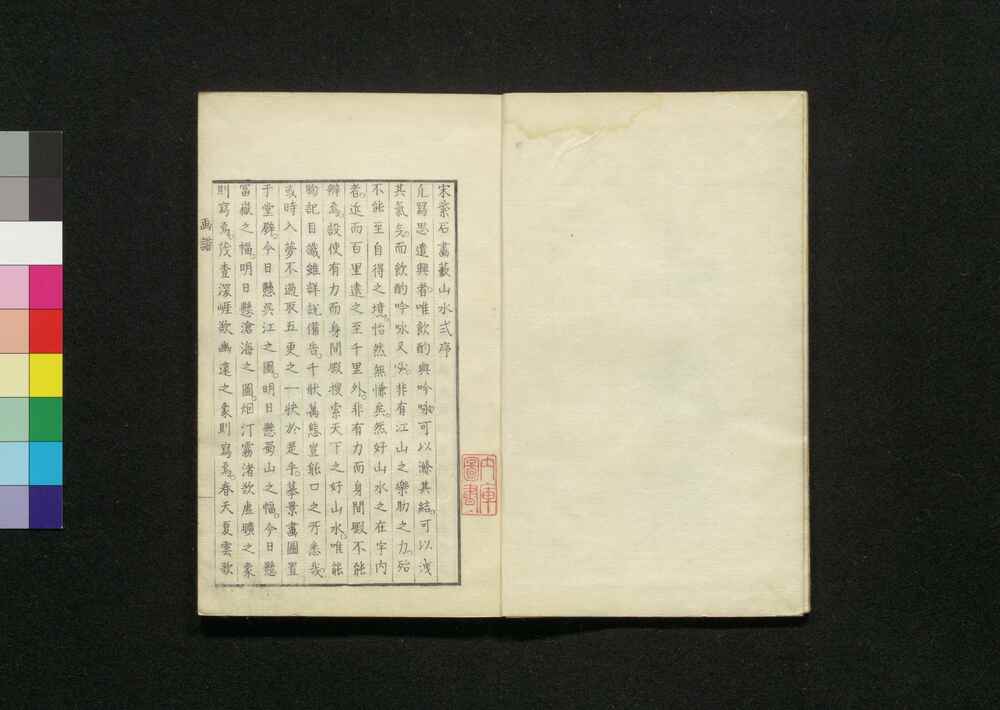 宋紫石畵藪山水式序
凢寫思遣興者。唯飲酌與吟咏可以滌其結。可以洩
其氣矣。而飲酌吟咏又必。非有江山之樂助之力。殆
不能至自得之境。怡然無慊矣。然好山水之在宇内
者。近而百里遠之至千里外。非有力而身間暇不能
辨焉。設使有力而身間暇搜索天下之好山水。唯能
物記目識雖詳說備告。千狀萬態豈能口之所悉哉。
或時入夢不過取五更之一快於是乎。摹景畵圖置
于堂壁。今日懸吳江之圖。明日懸蜀山之幅。今日懸
富嶽之幅。明日懸滄海之圖。烟汀霧渚欲虛曠之象
則寫焉。茂查深崕欲幽遠之象則寫焉。春天夏雲欲
画譜
内庫
圖書